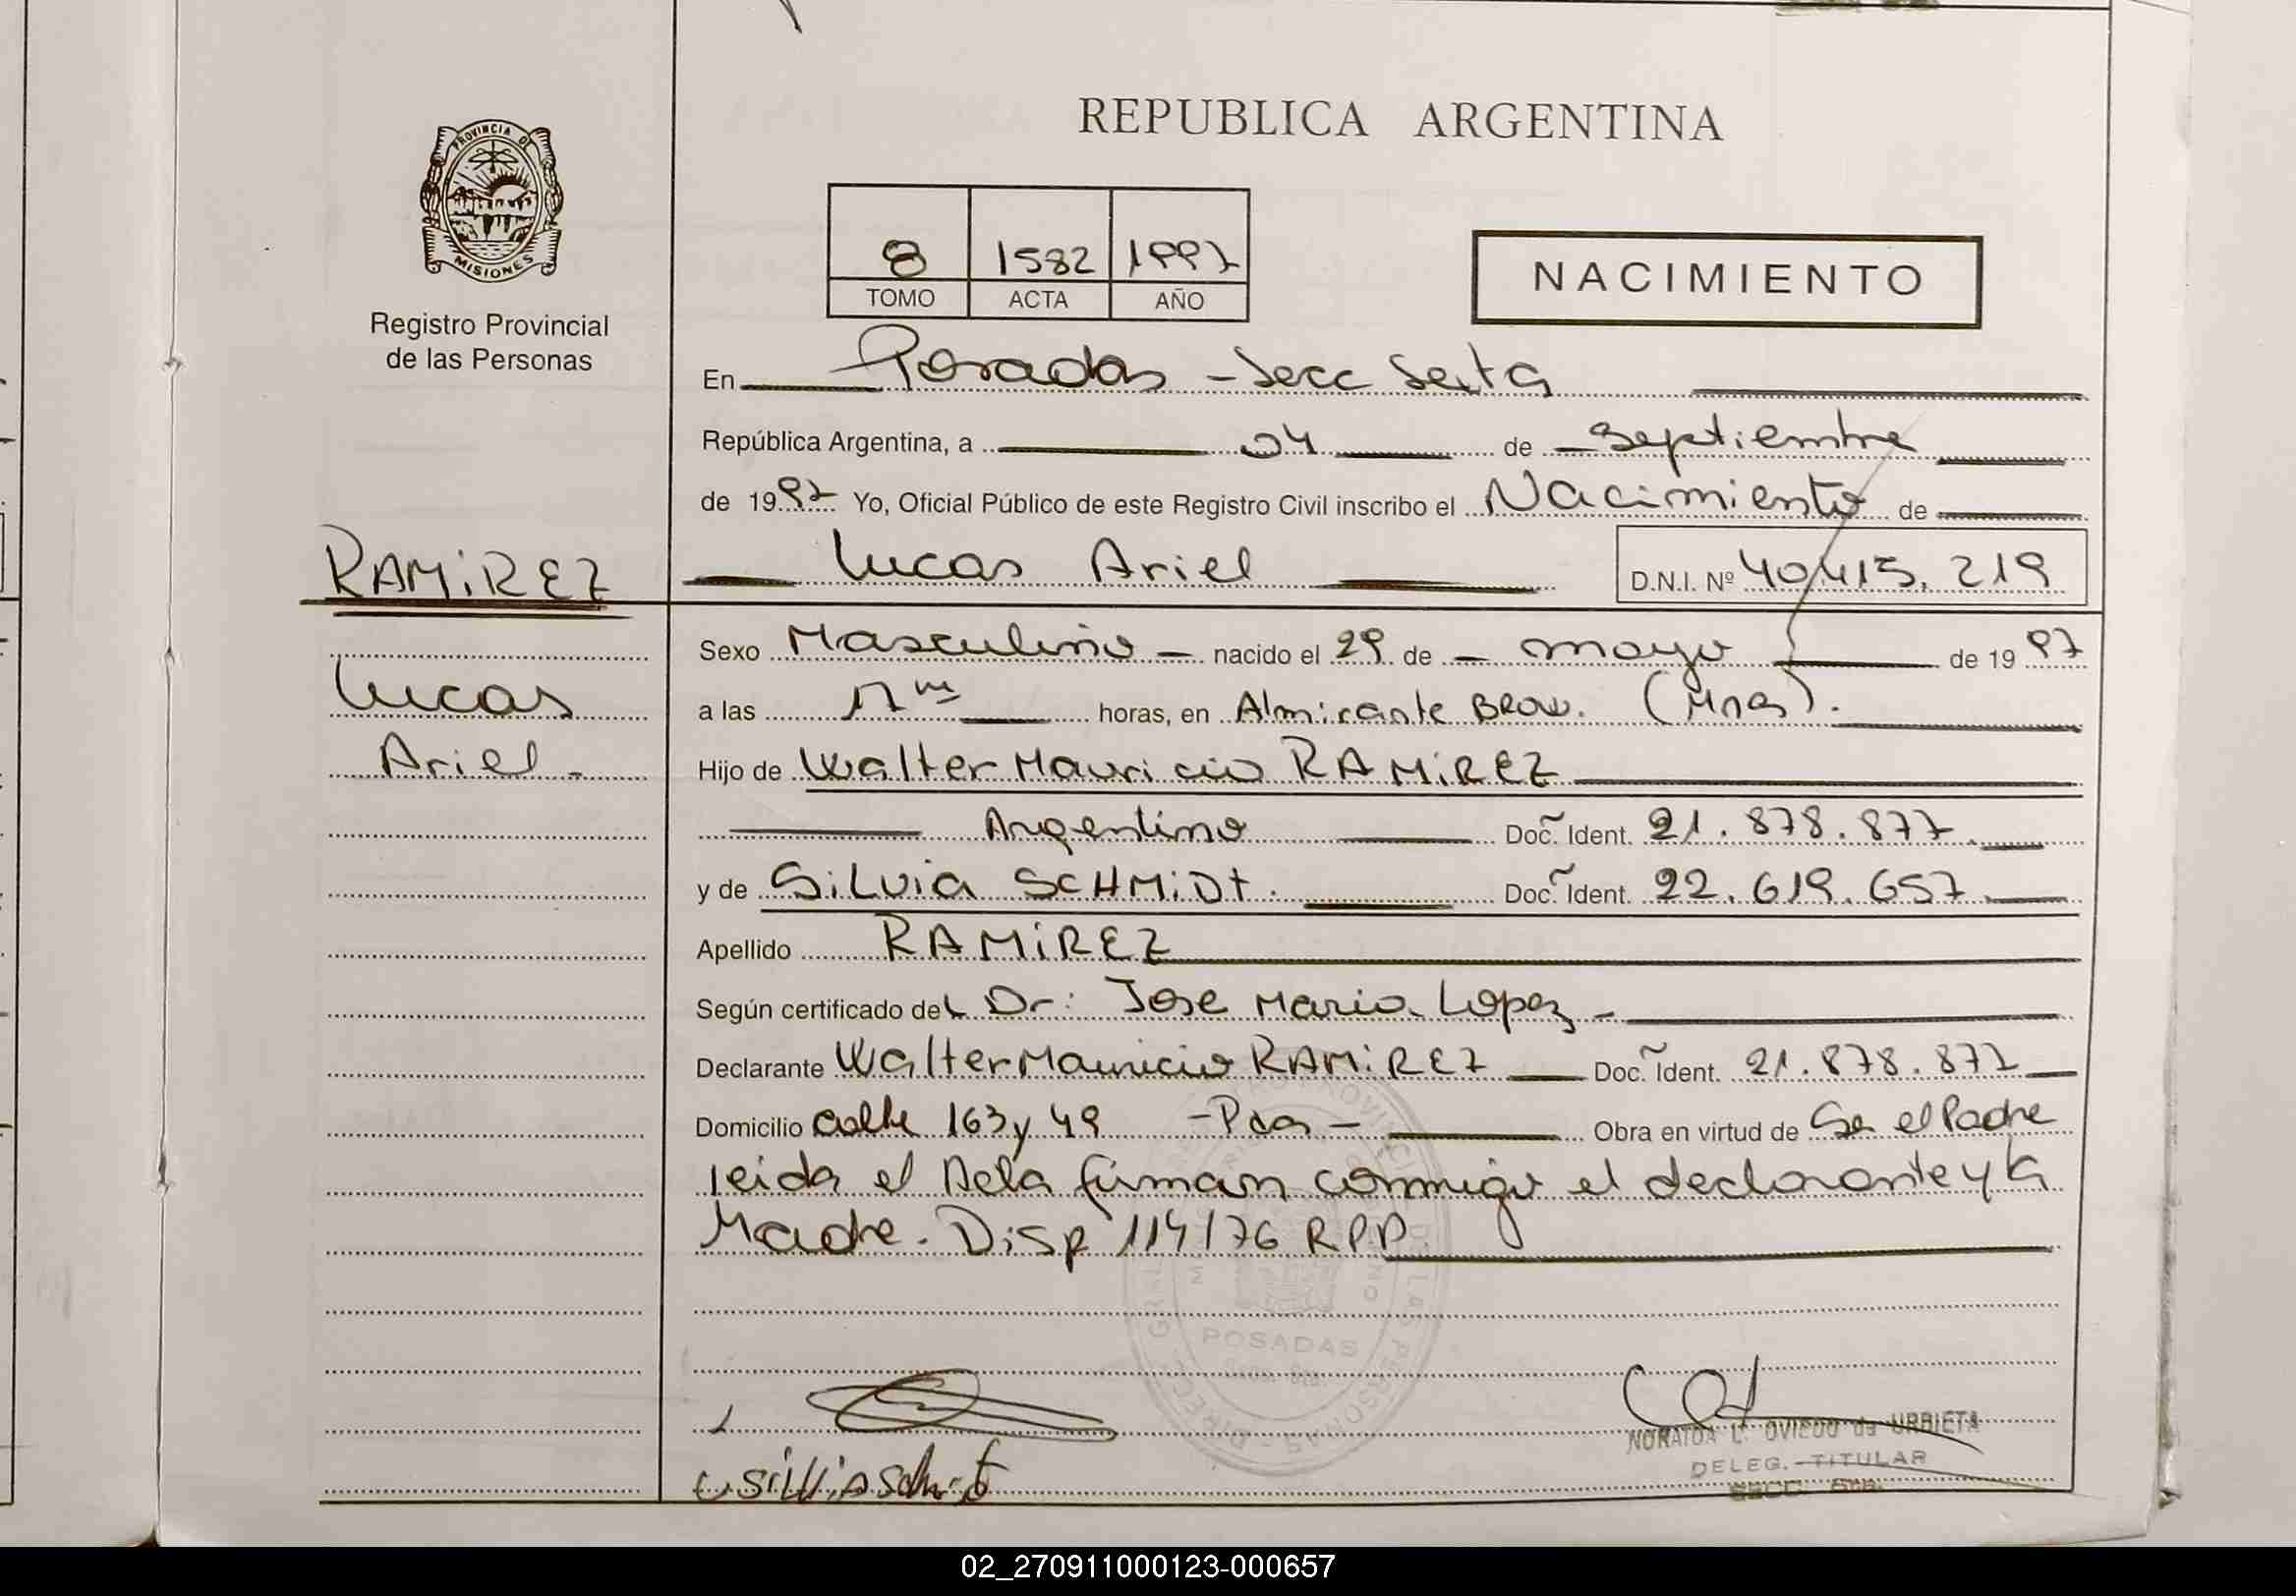 REPUBLICA ARGENTINA
PROVINCIA DE
MISIONES
Registro Provincial
de las Personas
8 1582 1997
TOMO ACTA AÑO
NACIMIENTO
En Posadas - Secc Sexta
República Argentina, a 04 de Septiembre
de 1997 Yo, Oficial Público de este Registro Civil inscribo el Nacimiento de
RAMIREZ
Lucas Ariel D.N.I. Nº 40.415.219
Lucas
Ariel -
Sexo Masculino - nacido el 29 de - mayo de 1997
a las horas, en Almirante Brow. (Mnes).
Hijo de Walter Mauricio RAMIREZ
Argentino Doc. Ident. 21.878.877
y de SiLviA SCHMiDt. Doc. Ident. 22.619.657
Apellido RAMIREZ
Según certificado del Dr: Jose Mario Lopez -
Declarante Walter Mauricio RAMIREZ Doc. Ident. 21.878.877
Domicilio calle 163 y 49 - Pdas - Obra en virtud de Ser el Padre
leida el Acta firman conmigo el declarante y la
Madre. Disp 114/76 RPP
POSADAS
Silvia Schmidt
NORAIDA L. OVIEDO de URBIETA
DELEG. TITULAR
SECC. 6ta.
02_270911000123-000657